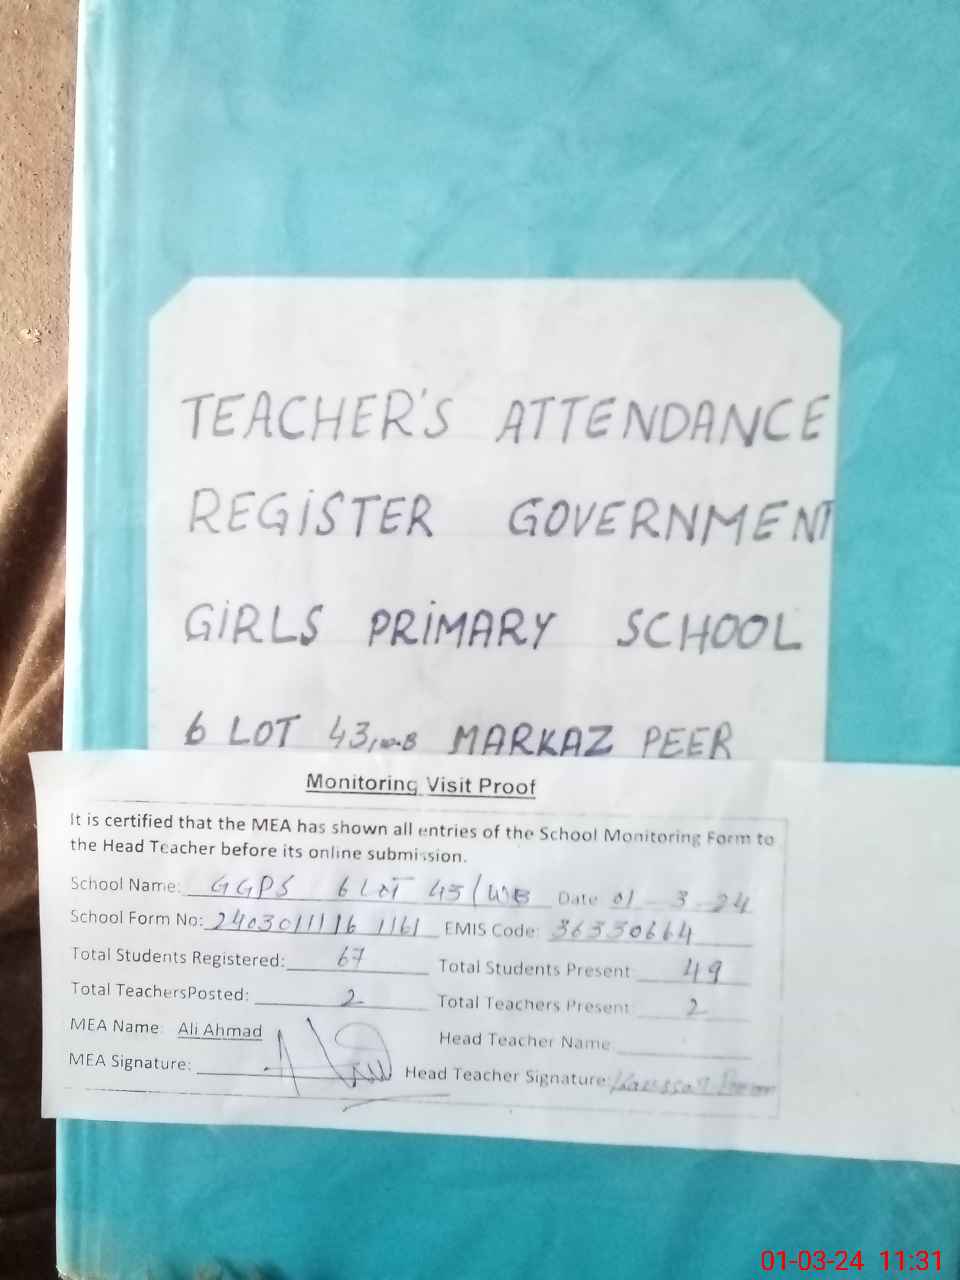 TEACHER'S ATTENDANCE
REGISTER GOVERNMENT
GIRLS PRIMARY SCHOOL
6 LOT 43,W.B MARKAZ PEER
Monitoring Visit Proof
It is certified that the MEA has shown all entries of the School Monitoring Form to
the Head Teacher before its online submission.
School Name: GGPS 6 LOT 43/WB Date 01-3-24
School Form No: 2403011116 1161 EMIS Code: 36330664
Total Students Registered: 67 Total Students Present 49
Total TeachersPosted: 2 Total Teachers Present: 2
MEA Name: Ali Ahmad Head Teacher Name:
MEA Signature: Head Teacher Signature: Kaussar
01-03-24 11:31